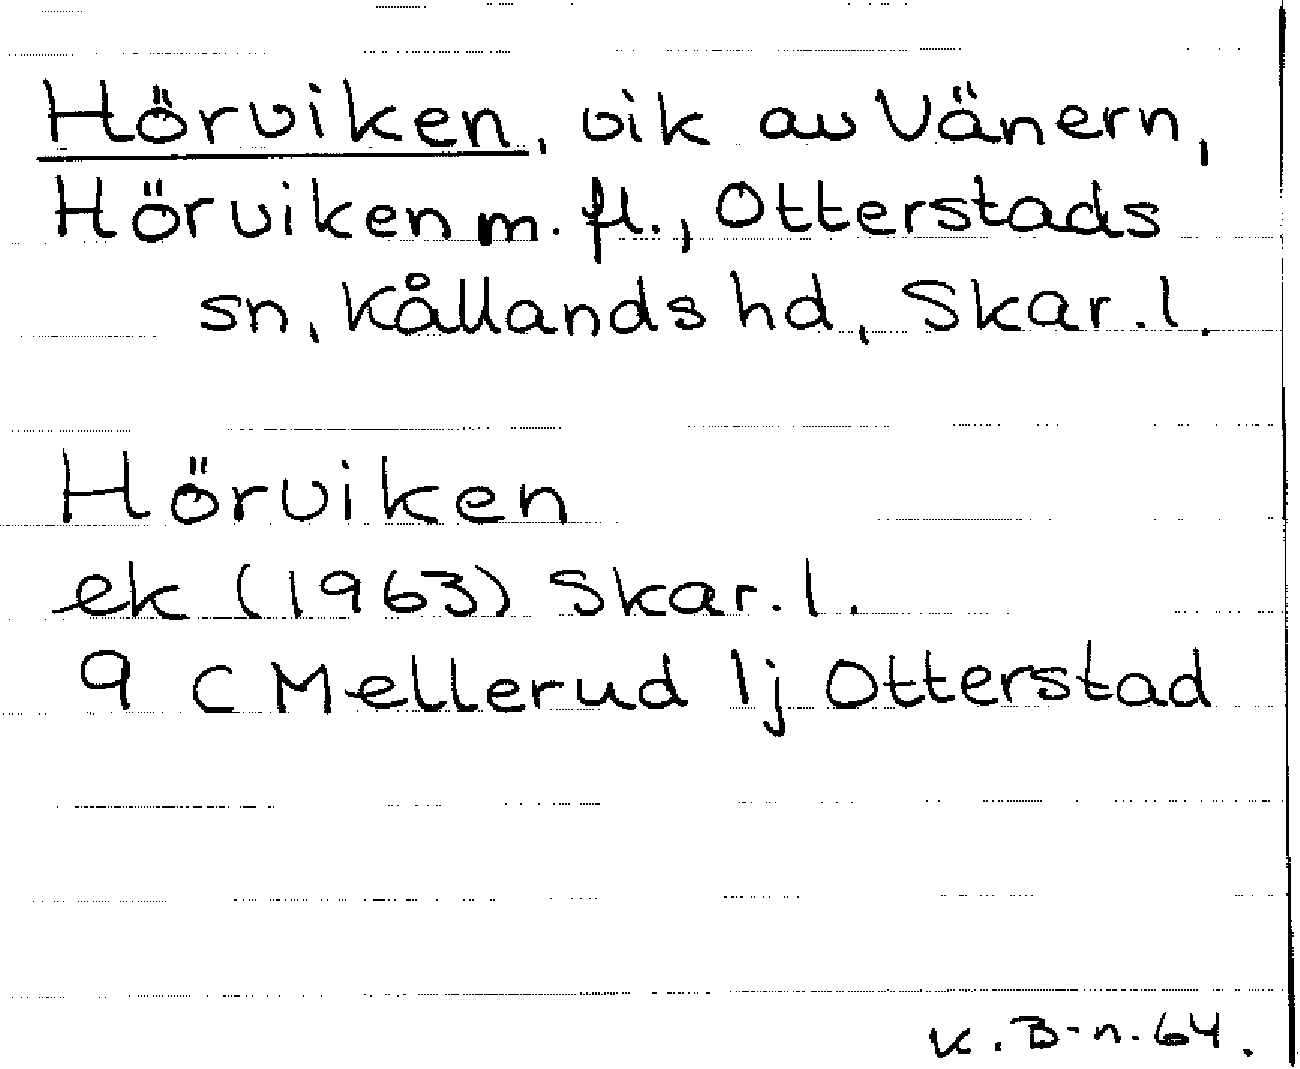 Hörviken, vik av Vänern,
Hörviken m. fl., Otterstads
sn, Kållands hd, Skar. l.
Hörviken
ek (1963) Skar. l.
9 C Mellerud 1j Otterstad
K. B-n. 64.